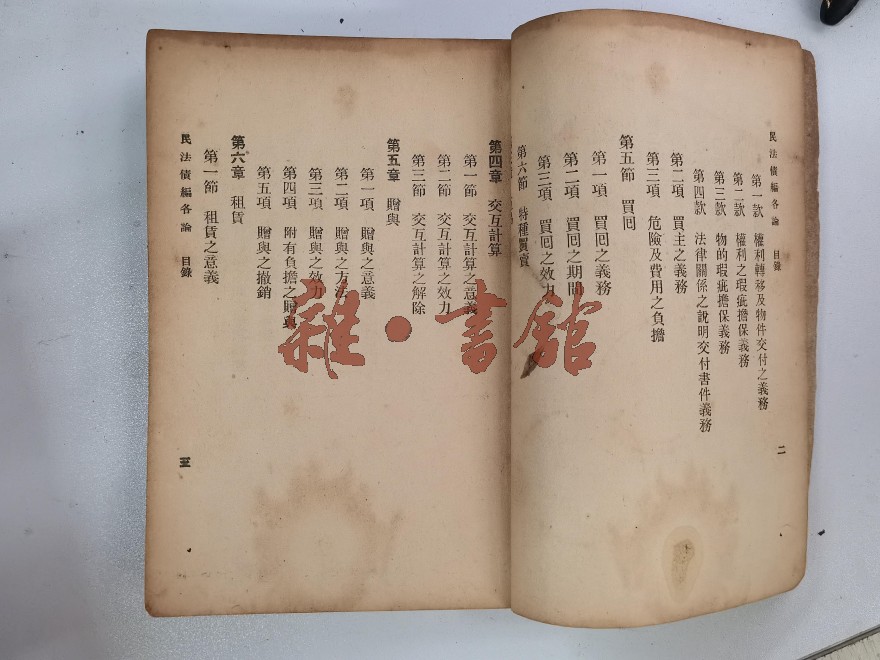 民法債編各論 目錄
第一款 權利轉移及物件交付之義務
第二款 權利之瑕疵擔保義務
第三款 物的瑕疵擔保義務
第四款 法律關係之說明交付書件義務
第二項 買主之義務
第三項 危險及費用之負擔
第五節 買回
第一項 買回之義務
第二項 買回之期間
第三項 買回之效力
第六節 特種買賣
二
第四章 交互計算
第一節 交互計算之意義
第二節 交互計算之效力
第三節 交互計算之解除
第五章 贈與
第一項 贈與之意義
第二項 贈與之方法
第三項 贈與之效力
第四項 附有負擔之贈與
第五項 贈與之撤銷
第六章 租賃
第一節 租賃之意義
民法債編各論 目錄
三
雜·書館